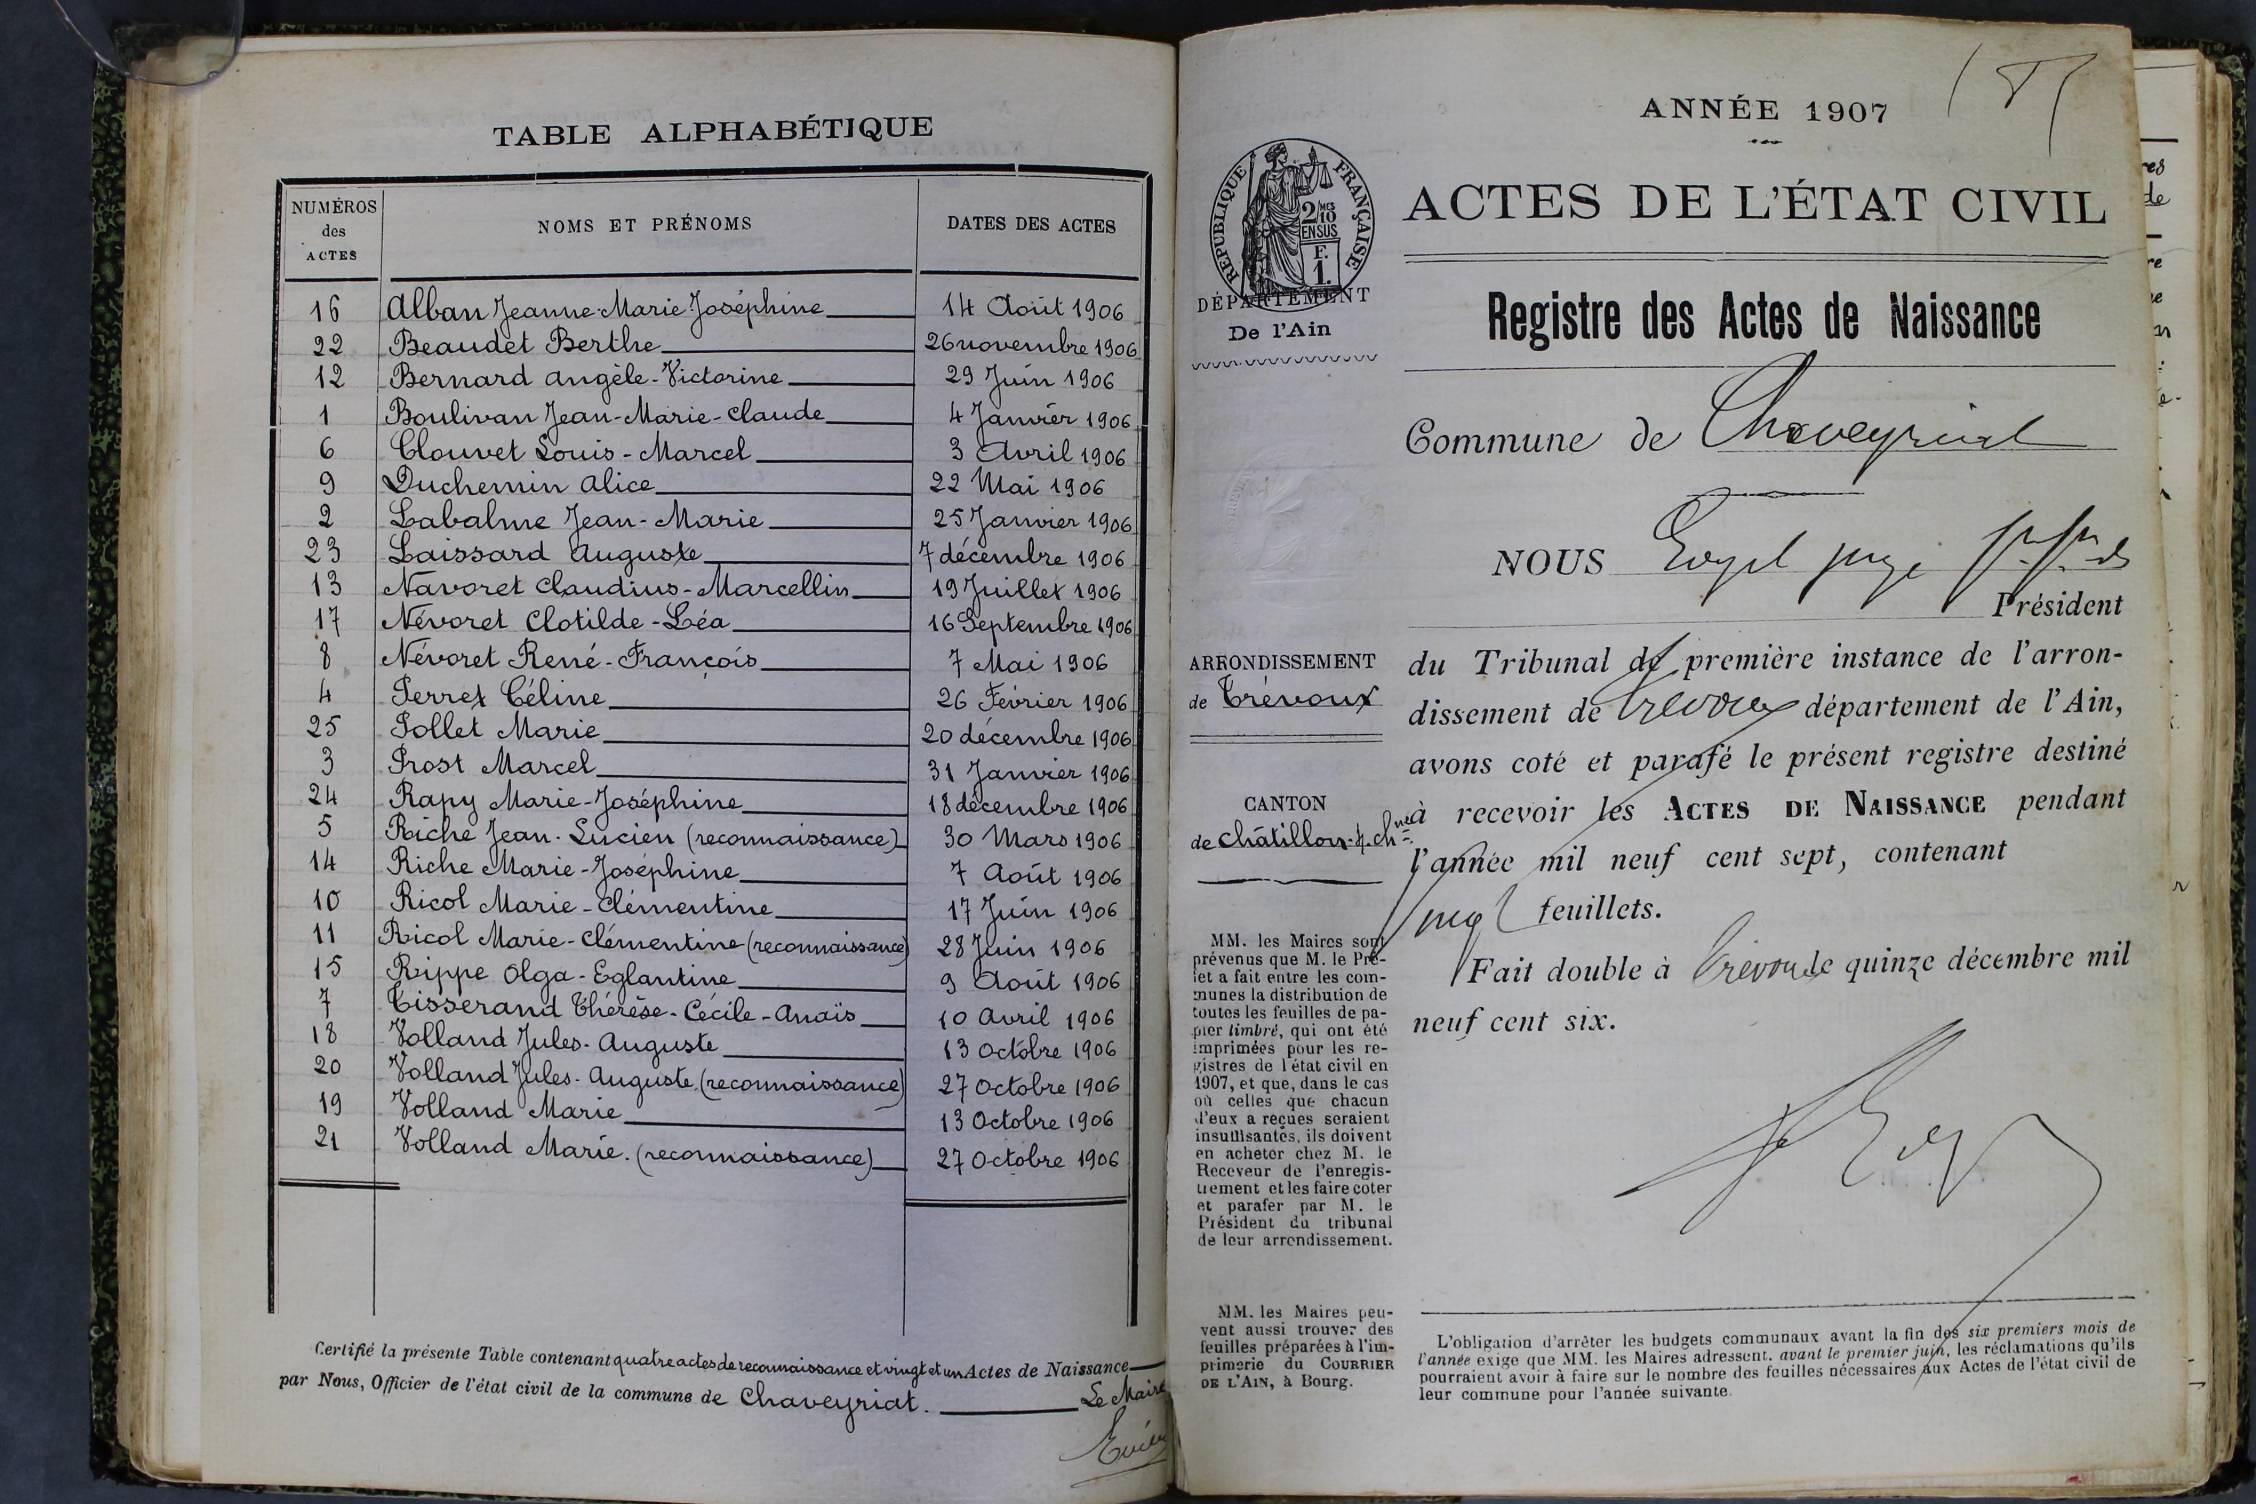 TABLE ALPHABÉTIQUE
NUMÉROS des ACTES NOMS ET PRÉNOMS DATES DES ACTES
16 Alban Jeanne-Marie-Joséphine 14 Août 1906
22 Beaudet Berthe 26 novembre 1906
12 Bernard Angèle-Victorine 29 Juin 1906
1 Boulivan Jean-Marie-Claude 4 Janvier 1906
6 Clouvet Louis-Marcel 3 Avril 1906
9 Duchemin Alice 22 Mai 1906
2 Labalme Jean-Marie 25 Janvier 1906
23 Laissard Auguste 7 décembre 1906
13 Navoret Claudius-Marcellin 19 Juillet 1906
17 Névoret Clotilde-Léa 16 Septembre 1906
8 Névoret René-François 7 Mai 1906
4 Perret Céline 26 Février 1906
25 Pollet Marie 20 décembre 1906
3 Prost Marcel 31 Janvier 1906
24 Rapy Marie-Joséphine 18 décembre 1906
5 Riche Jean-Lucien (reconnaissance) 30 Mars 1906
14 Riche Marie-Joséphine 7 Août 1906
10 Ricol Marie-Clémentine 17 Juin 1906
11 Ricol Marie-Clémentine (reconnaissance) 28 Juin 1906
15 Rippe Olga-Eglantine 9 Août 1906
7 Tisserand Thérèse-Cécile-Anaïs 10 Avril 1906
18 Volland Jules-Auguste 13 Octobre 1906
20 Volland Jules-Auguste (reconnaissance) 27 Octobre 1906
19 Volland Marie 13 Octobre 1906
21 Volland Marie. (reconnaissance) 27 Octobre 1906
Certifié la présente Table contenant quatre actes de reconnaissance et vingt et un Actes de Naissance
par Nous, Officier de l'état civil de la commune de Chaveyriat.
Le Maire
ANNÉE 1907
ACTES DE L'ÉTAT CIVIL
Registre des Actes de Naissance
Commune de Chaveyriat
NOUS
Président
du Tribunal de première instance de l'arron-
dissement de Trévoux département de l'Ain,
avons coté et parafé le présent registre destiné
à recevoir les ACTES DE NAISSANCE pendant
l'année mil neuf cent sept, contenant
feuillets.
Fait double à Trévoux le quinze décembre mil
neuf cent six.
RÉPUBLIQUE FRANÇAISE
2/10 MES
EN SUS
F.
1.
DÉPARTEMENT
De l'Ain
ARRONDISSEMENT
de Trévoux
CANTON
de Châtillon-s.-Chne
MM. les Maires sont
prévenus que M. le Pré-
fet a fait entre les com-
munes la distribution de
toutes les feuilles de pa-
pier timbré, qui ont été
imprimées pour les re-
gistres de l'état civil en
1907, et que, dans le cas
où celles que chacun
d'eux a reçues seraient
insuffisantes, ils doivent
en acheter chez M. le
Receveur de l'enregis-
trement et les faire coter
et parafer par M. le
Président du tribunal
de leur arrondissement.
MM. les Maires peu-
vent aussi trouver des
feuilles préparées à l'im-
primerie du COURRIER
DE L'AIN, à Bourg.
L'obligation d'arrêter les budgets communaux avant la fin des six premiers mois de
l'année exige que MM. les Maires adressent, avant le premier juin, les réclamations qu'ils
pourraient avoir à faire sur le nombre des feuilles nécessaires aux Actes de l'état civil de
leur commune pour l'année suivante.